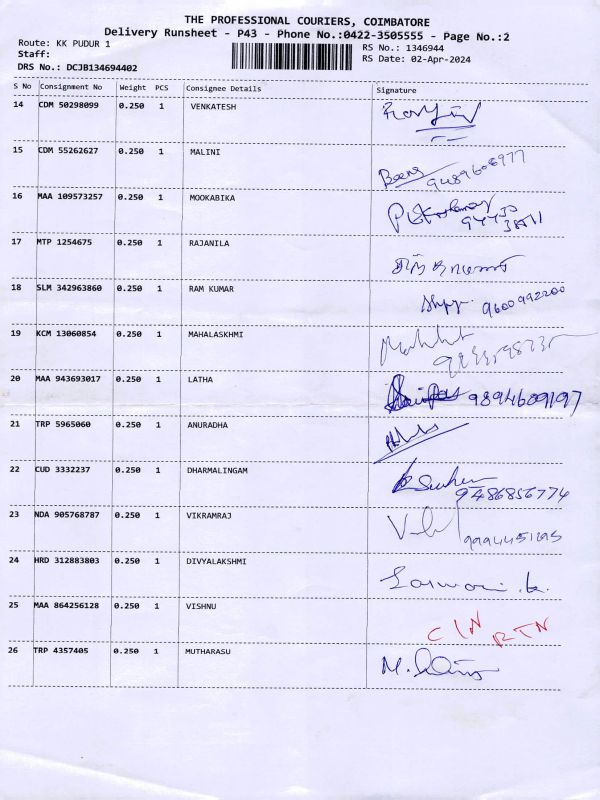 THE PROFESSIONAL COURIERS, COIMBATORE
Delivery Runsheet - P43 - Phone No.:0422-3505555 - Page No.:2
Route: KK PUDUR 1 RS No.: 1346944
Staff: RS Date: 02-Apr-2024
DRS No.: DCJB134694402
S No Consignment No Weight PCS Consignee Details Signature
14 CDM 50298099 0.250 1 VENKATESH
15 CDM 55262627 0.250 1 MALINI
Beena 9489608977
16 MAA 109573257 0.250 1 MOOKABIKA
17 MTP 1254675 0.250 1 RAJANILA
18 SLM 342963860 0.250 1 RAM KUMAR
9600992200
19 KCM 13060854 0.250 1 MAHALASKHMI
20 MAA 943693017 0.250 1 LATHA
9894609197
21 TRP 5965060 0.250 1 ANURADHA
22 CUD 3332237 0.250 1 DHARMALINGAM
9486856774
23 NDA 905768787 0.250 1 VIKRAMRAJ
24 HRD 312883803 0.250 1 DIVYALAKSHMI
25 MAA 864256128 0.250 1 VISHNU
CIN RTN
26 TRP 4357405 0.250 1 MUTHARASU